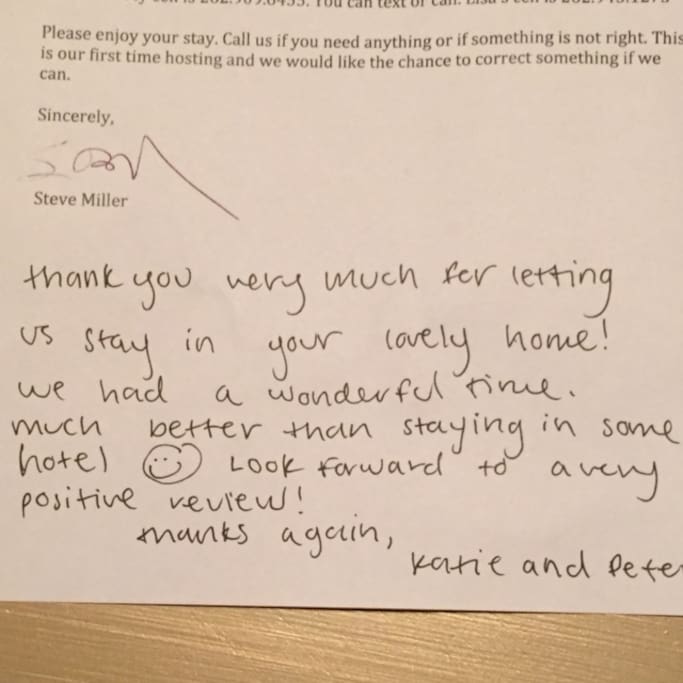 You can text or call.
Please enjoy your stay. Call us if you need anything or if something is not right. This
is our first time hosting and we would like the chance to correct something if we
can.
Sincerely,
Steve Miller
thank you very much for letting
us stay in your lovely home!
we had a wonderful time.
much better than staying in some
hotel Look forward to a very
positive review!
thanks again,
Katie and Pete